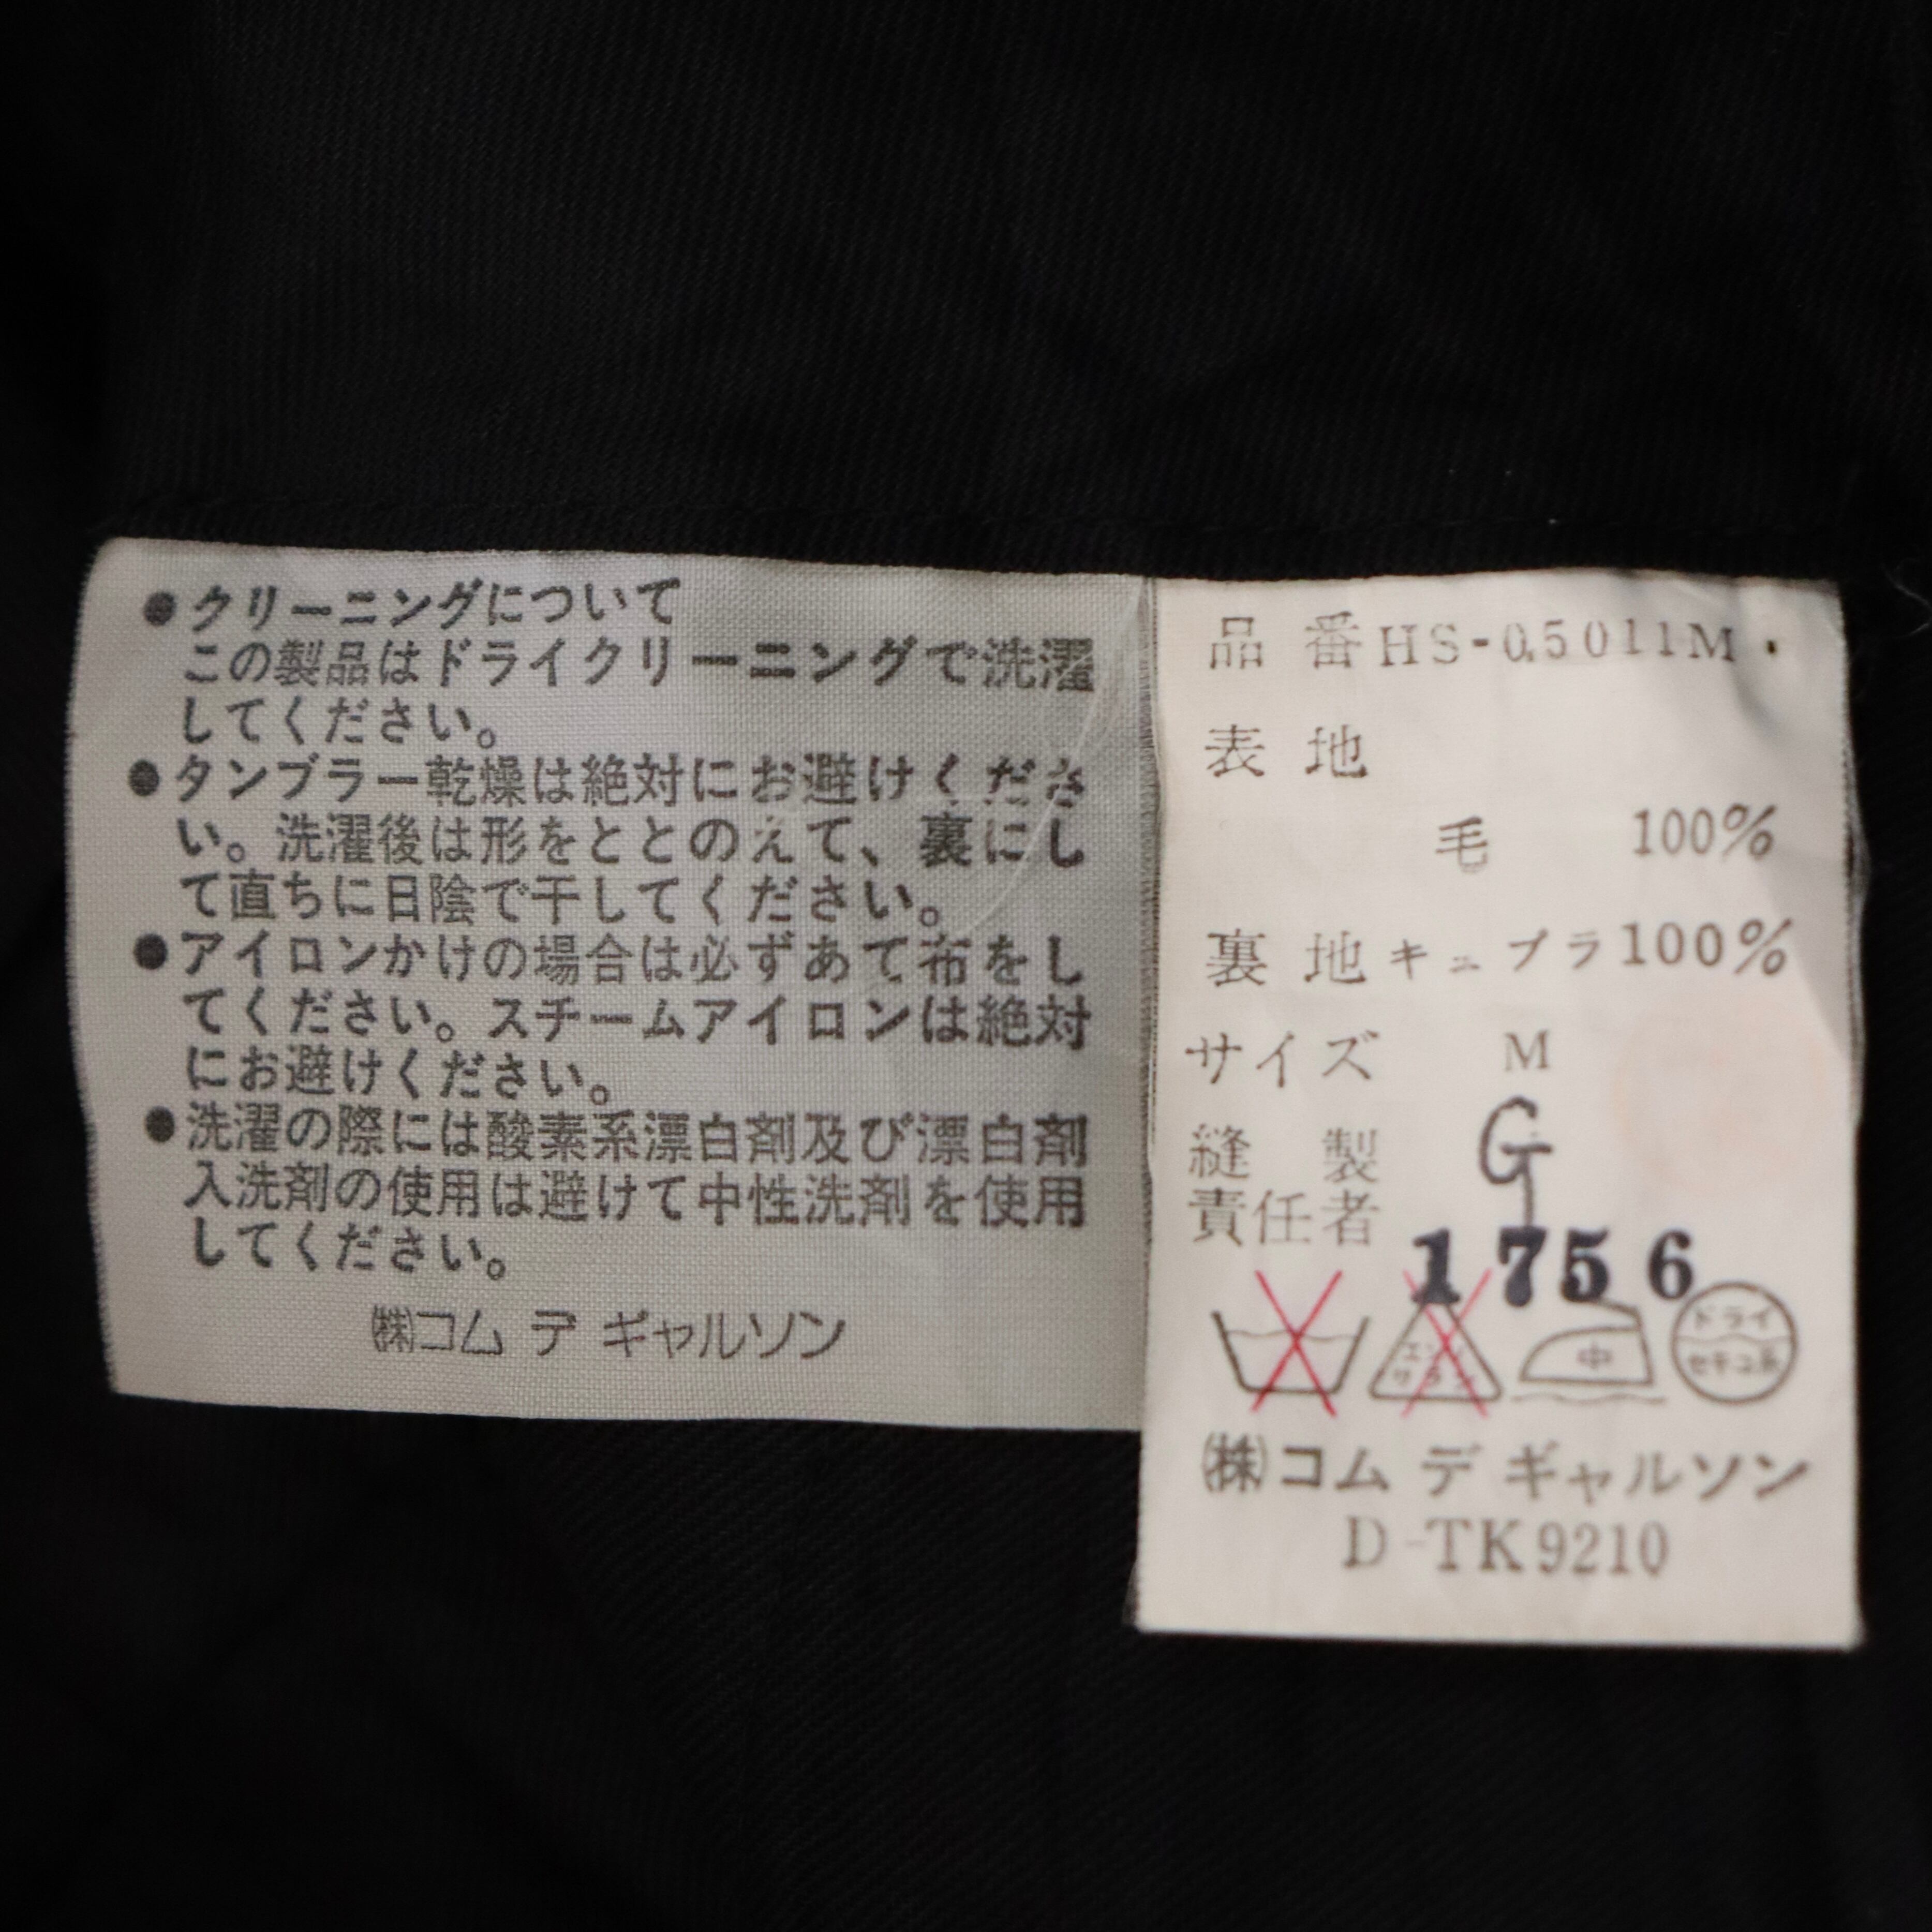 ●クリーニングについて
この製品はドライクリーニングで洗濯
してください。
●タンブラー乾燥は絶対にお避けくださ
い。洗濯後は形をととのえて、裏にし
て直ちに日陰で干してください。
●アイロンかけの場合は必ずあて布をし
てください。スチームアイロンは絶対
にお避けください。
●洗濯の際には酸素系漂白剤及び漂白剤
入洗剤の使用は避けて中性洗剤を使用
してください。
㈱コム デ ギャルソン
品 番 HS-05011M
表 地
毛 100%
裏 地 キュプラ 100%
サイズ M
縫 製 G
責任者
1756
エンソ サラシ 中 ドライ セキユ系
㈱コム デ ギャルソン
D-TK9210